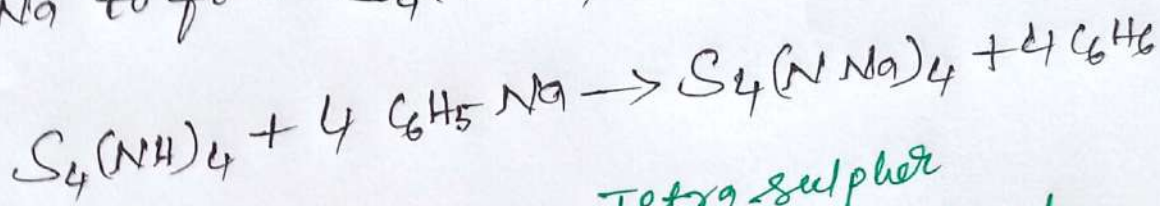 Na to
S₄(NH)₄ + 4 C₆H₅Na → S₄(NNa)₄ + 4 C₆H₆
Tetra sulpher